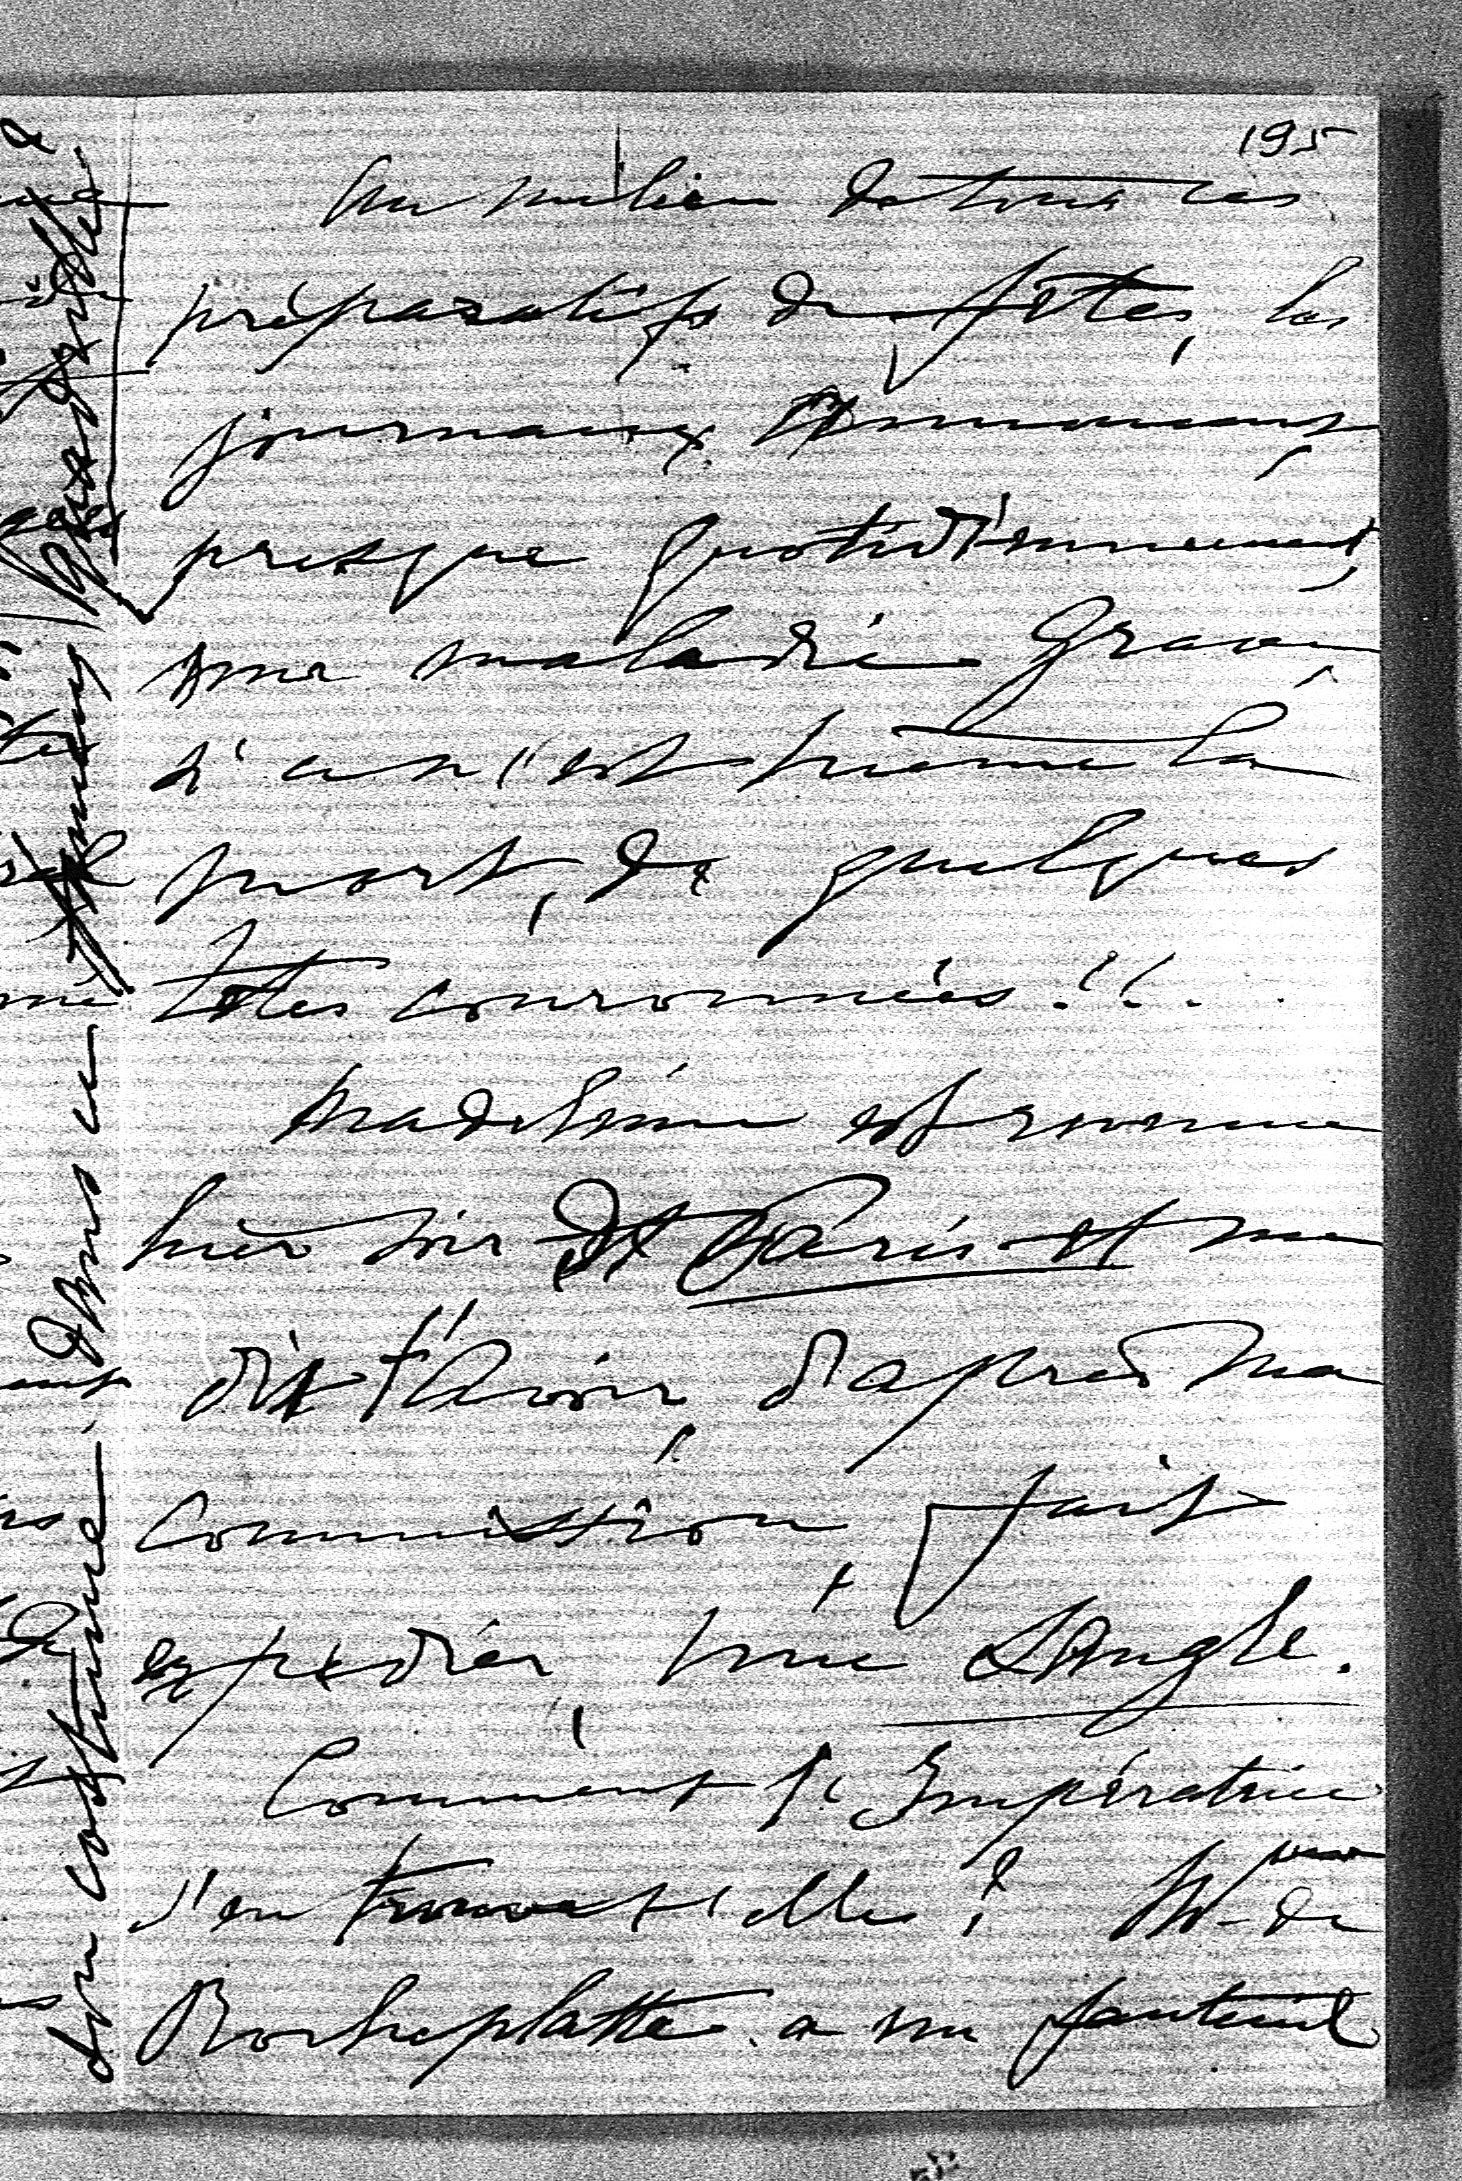 195
Au milieu de tous ces
préparatifs de fêtes, les
journaux annoncent
presque quotidiennement,
une maladie grave
si ce n'est même la
mort, de quelques
têtes couronnées!!.
Madeleine est revenue
hier soir de Paris et me
dit t'avoir, d'après ma
Commission, fait
expédier une Sangle.
Comment l'Impératrice
s'en trouve t'elle? Mme de
Rocheplatte a un fauteuil
dans ce
son costume